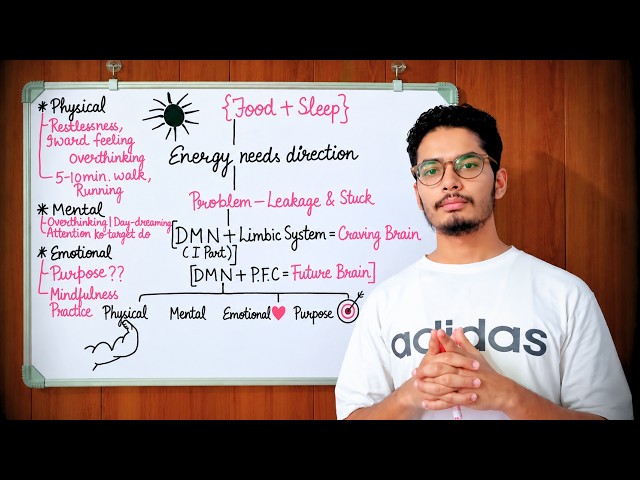 * Physical
Restlessness,
Iward feeling
Overthinking
5-10 min. walk,
Running
* Mental
Overthinking | Day-dreaming
Attention ko target do
* Emotional
Purpose ??
Mindfulness
Practice
{Food + Sleep}
Energy needs direction
Problem - Leakage & Stuck
[DMN + Limbic System = Craving Brain
(I Part)]
[DMN + P.F.C = Future Brain]
Physical Mental Emotional Purpose
adidas